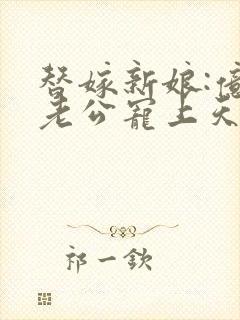 替嫁新娘:億
老公寵上天
祁一欽